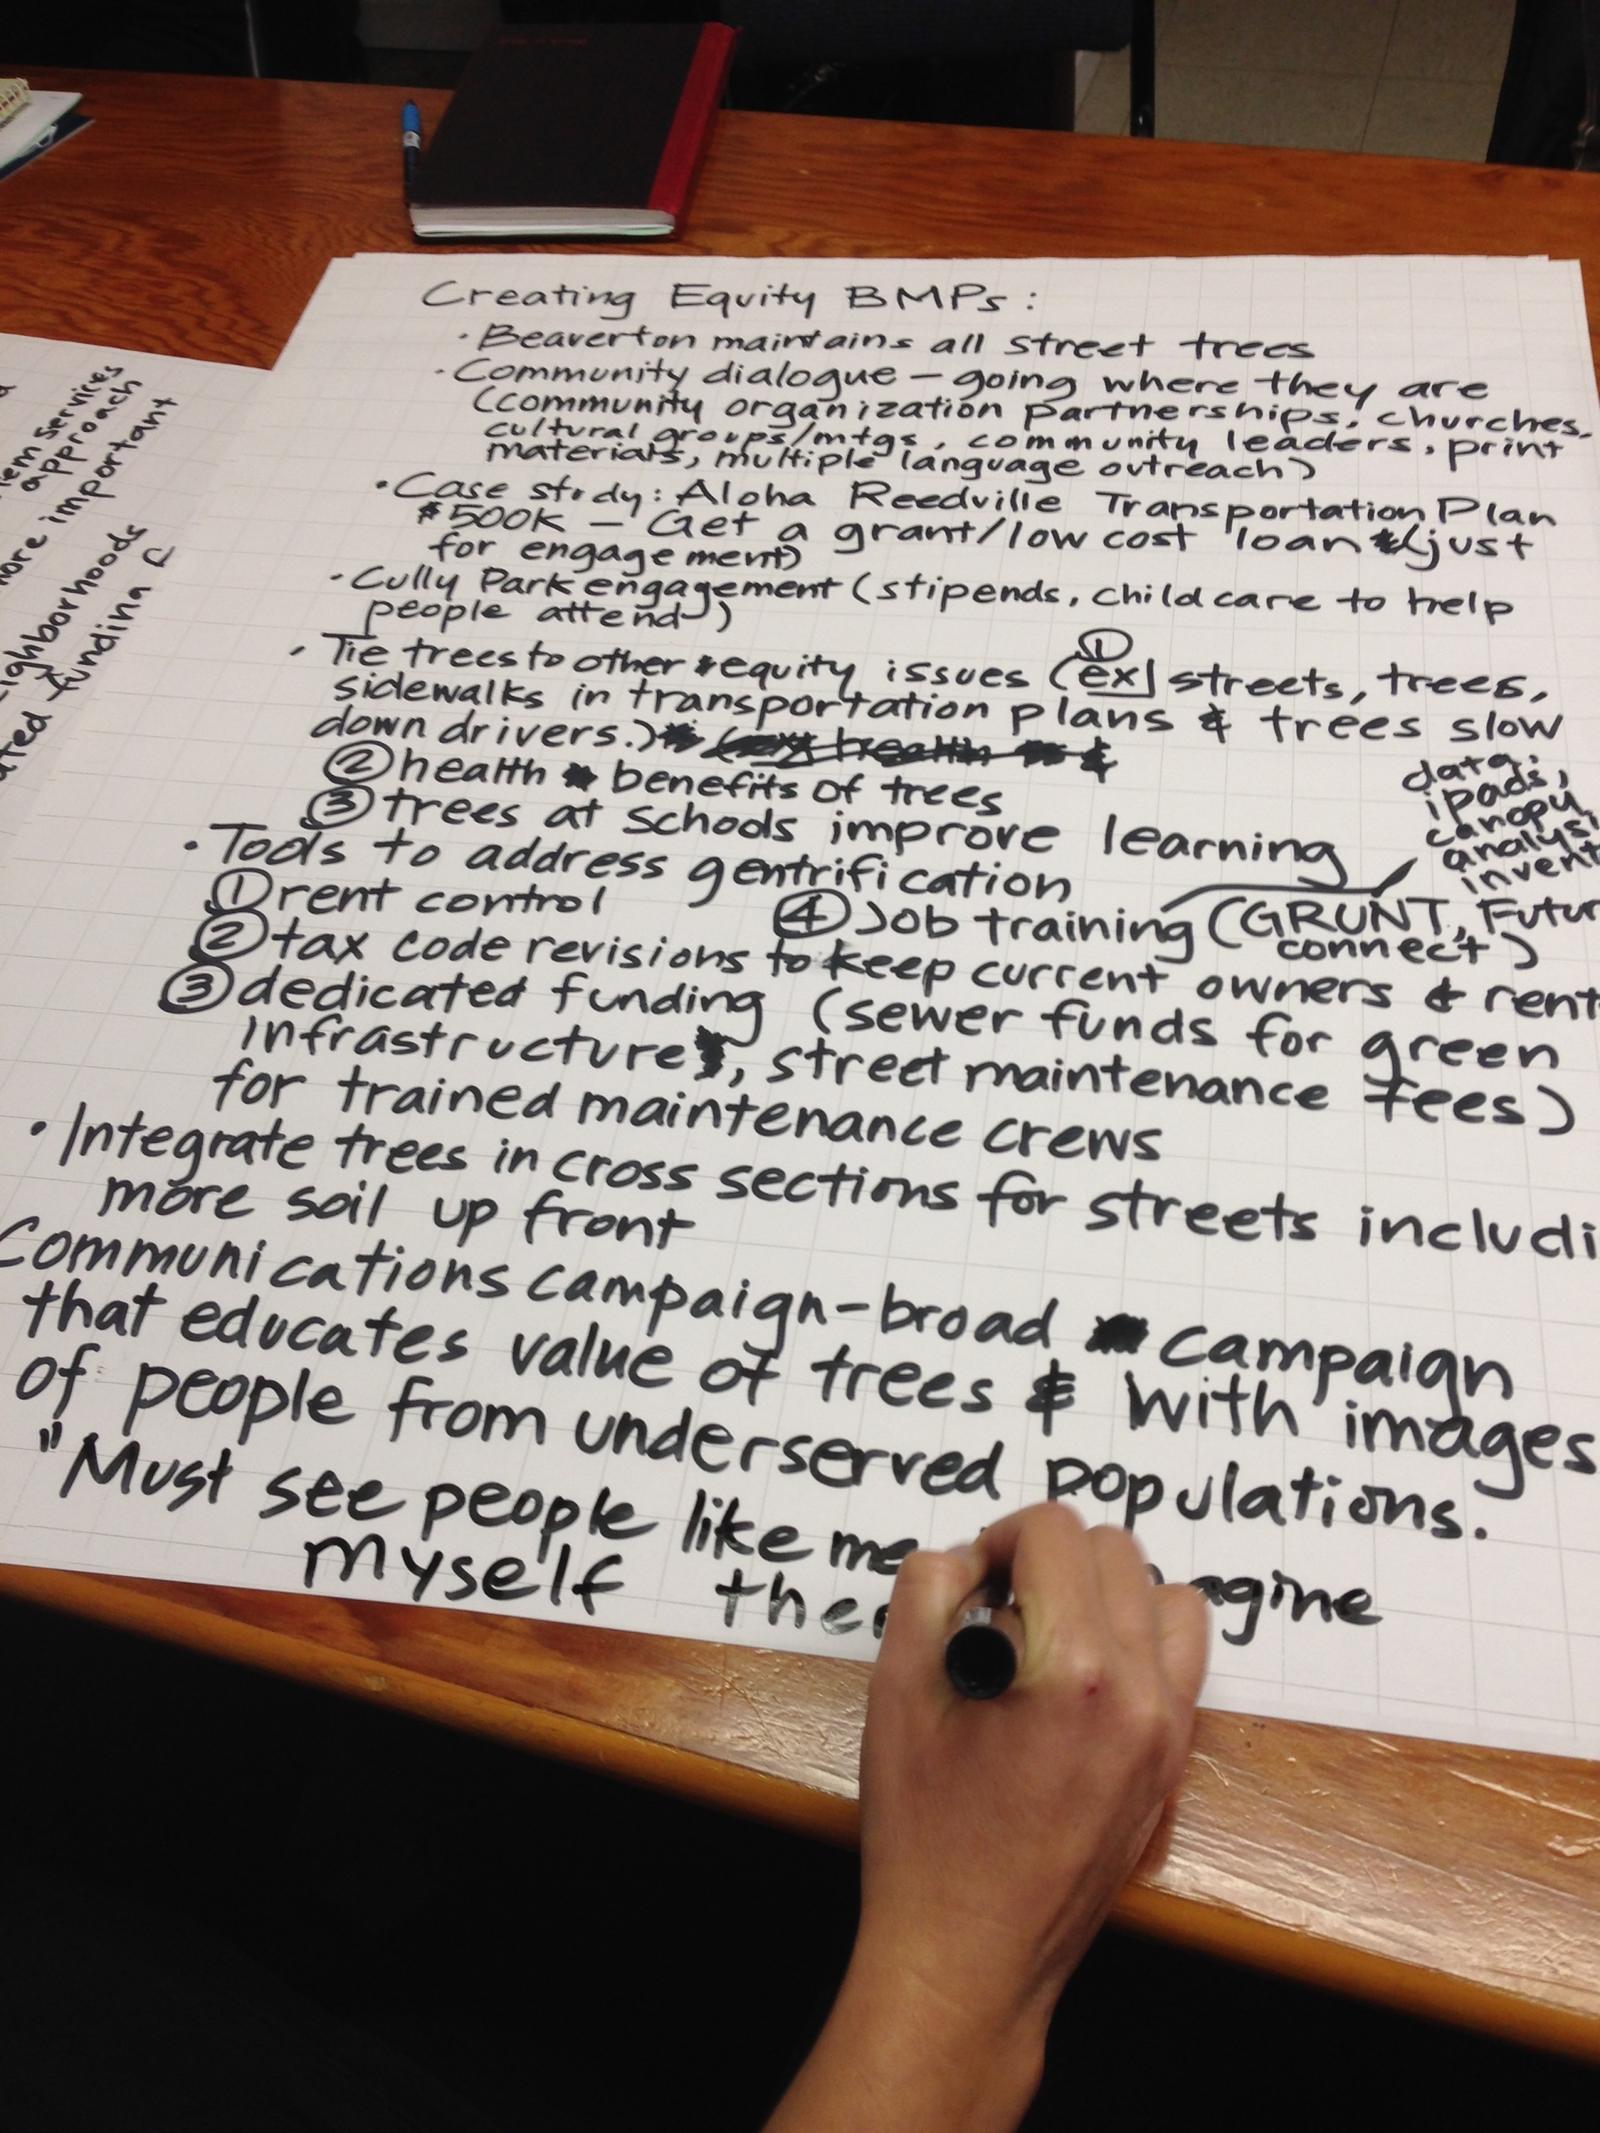 Creating Equity BMPs:
· Beaverton maintains all street trees
· Community dialogue – going where they are
(community organization partnerships, churches,
cultural groups/mtgs, community leaders, print
materials, multiple language outreach)
· Case study: Aloha Reedville Transportation Plan
$500K – Get a grant/low cost loan (just
for engagement)
· Cully Park engagement (stipends, childcare to help
people attend)
· Tie trees to other equity issues (ex) ① streets, trees,
sidewalks in transportation plans & trees slow
down drivers.)
② health benefits of trees
③ trees at schools improve learning
data:
ipads,
canopy
· Tools to address gentrification
① rent control
④ Job training (GRUNT,
connect)
② tax code revisions to keep current owners & rent
③ dedicated funding (sewer funds for green
infrastructure, street maintenance fees)
for trained maintenance crews
· Integrate trees in cross sections for streets
more soil up front
Communications campaign – broad campaign
that educates value of trees & with images
of people from underserved populations.
"Must see people like me
myself
more important
approach
Services
funding